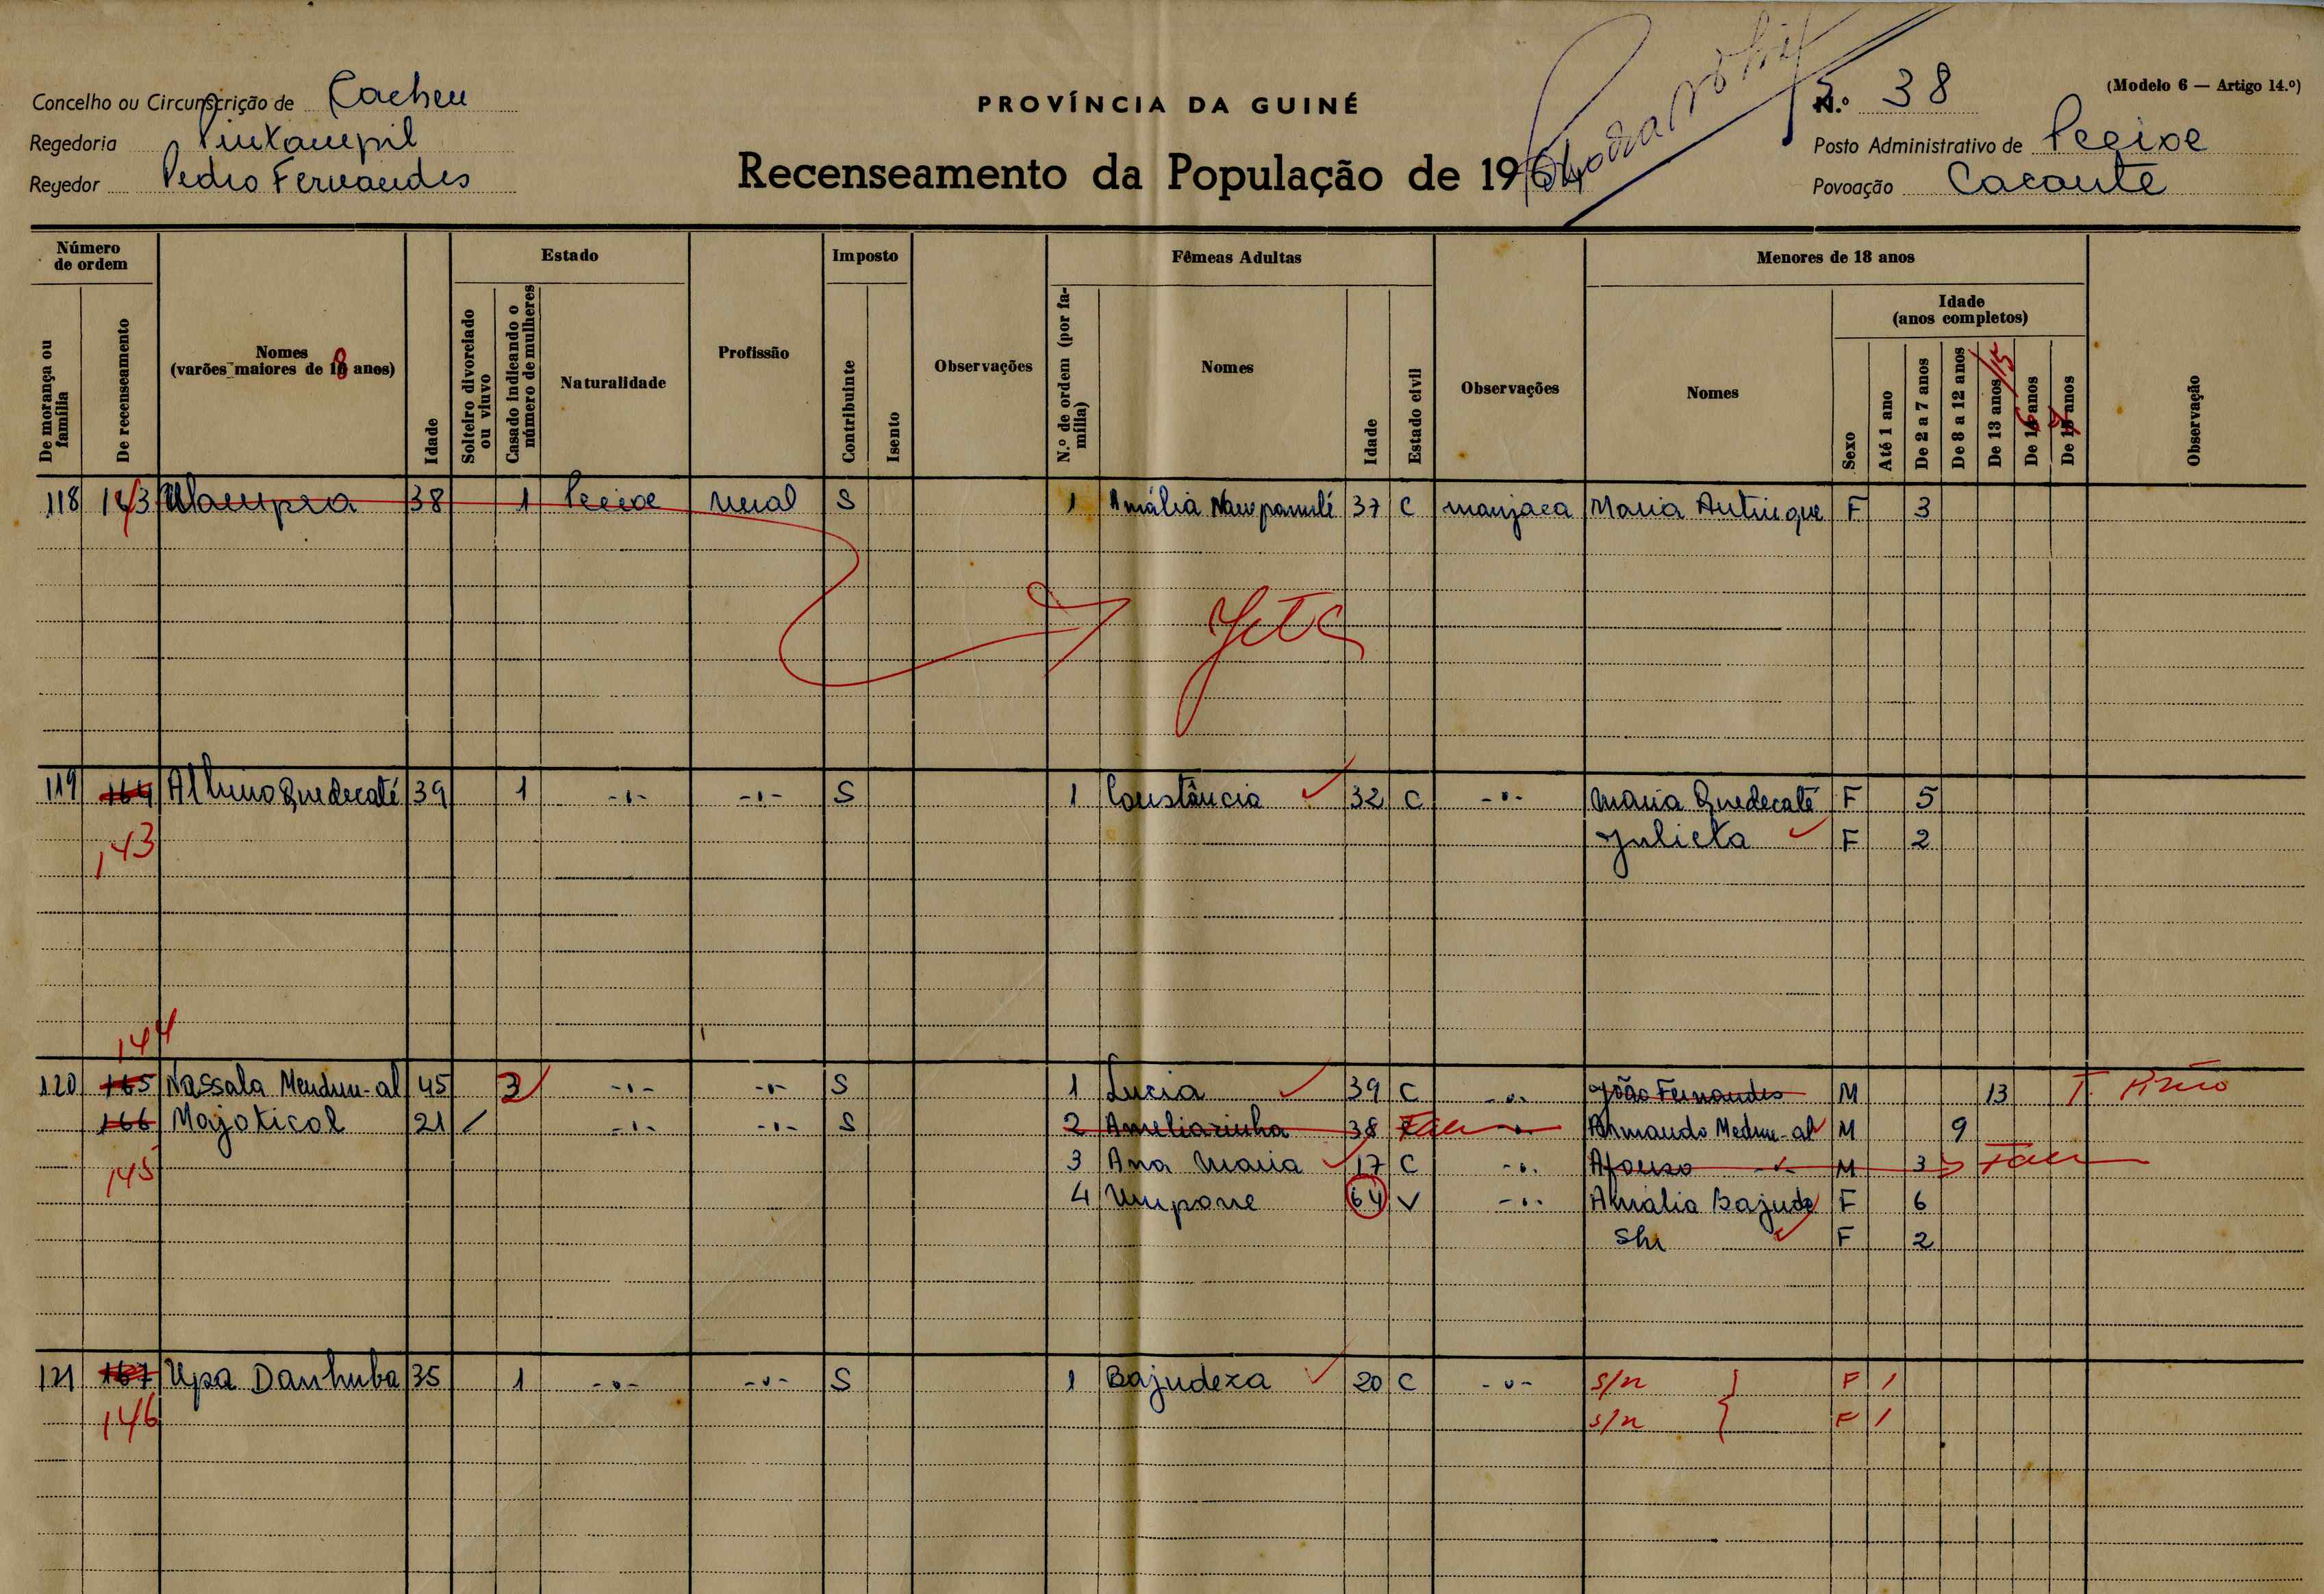 Concelho ou Circunscrição de Cacheu
PROVÍNCIA DA GUINÉ
N.º 38
(Modelo 6 — Artigo 14.º)
Regedoria
Posto Administrativo de Pecixe
Regedor Pedro Fernandes
Recenseamento da População de 1964
Povoação Cacante
Número de ordem
Estado
Imposto
Fêmeas Adultas
Menores de 18 anos
De morança ou família
De recenseamento
Nomes (varões maiores de 18 anos)
Idade
Solteiro divorciado ou viuvo
Casado indicando o número de mulheres
Naturalidade
Profissão
Contribuinte
Isento
Observações
N.º de ordem (por família)
Nomes
Idade
Estado civil
Observações
Nomes
Sexo
Idade (anos completos)
Até 1 ano
De 2 a 7 anos
De 8 a 12 anos
De 13 anos/15
De 16 anos
De 17 anos
Observação
118 38 1 Pecixe rural S 1 Amália 37 C manjaca Maria F 3
Jeta
119 164 Albino Quedecaté 39 1 -"- -"- S 1 Constância 32 C -"- Maria Quedecaté F 5
143 Julieta F 2
144
120 165 Nassala Mendum-al 45 3 -"- -"- S 1 Lucia 39 C -"- João Fernandes M 13
166 Majotical 21 / -"- -"- S 2 Ameliazinha 38 -"- Armando Medum-al M 9
145 3 Ana Maria 17 C -"- Afonso M 3
4 Umpone 64 V -"- Amália Bajuda F 6
F 2
121 167 Upa Danhuba 35 1 -"- -"- S 1 Bajudeza 20 C -"- s/n F 1
146 s/n F 1